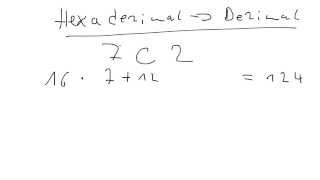 Hexadezimal -> Dezimal
7 C 2
16 · 7 + 12 = 124